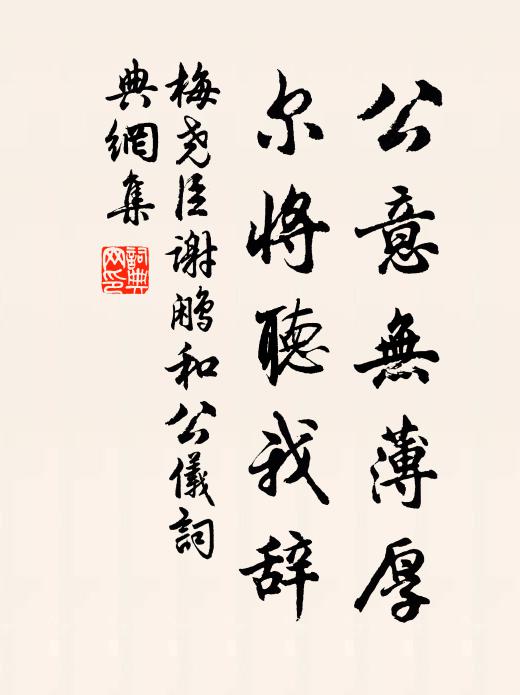 公意無薄厚
尔將聽我辞
梅尧臣谢鹏和公儀詞
典網集
詞典
网印